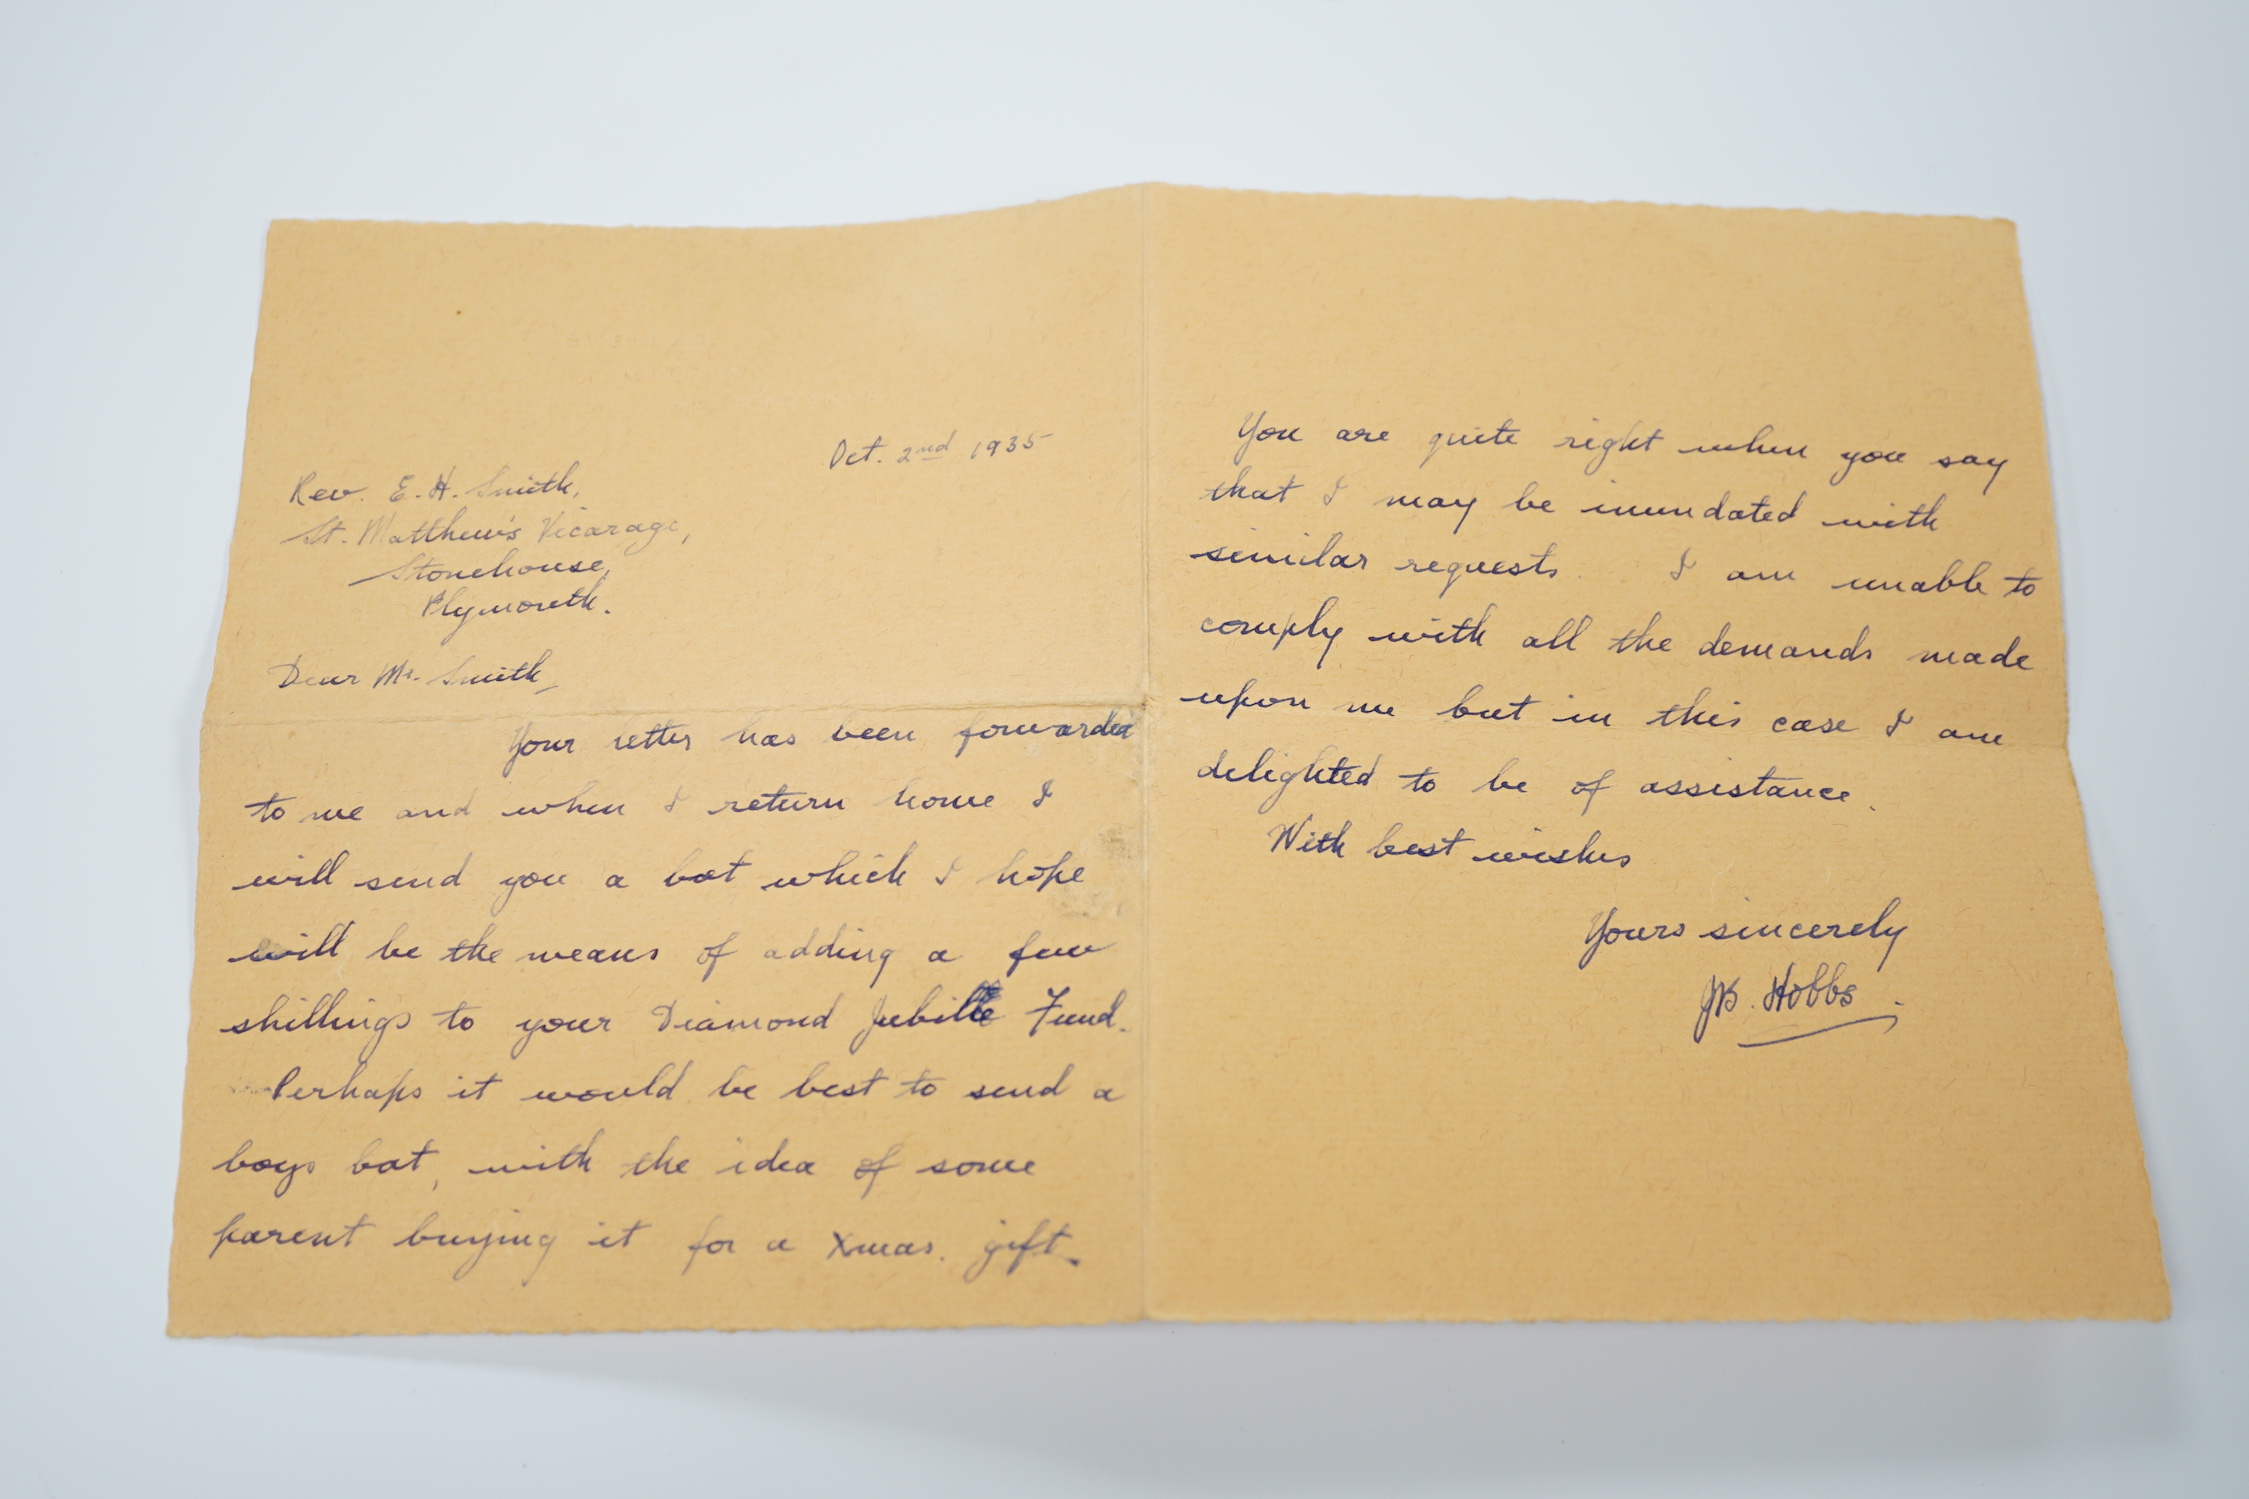 Oct. 2nd 1935
Rev. E. H. Smith,
St. Matthew's Vicarage,
Stonehouse,
Plymouth.
Dear Mr. Smith,
Your letter has been forwarded
to me and when I return home I
will send you a bat which I hope
will be the means of adding a few
shillings to your Diamond Jubilee Fund.
Perhaps it would be best to send a
boys bat, with the idea of some
parent buying it for a Xmas. gift.
You are quite right when you say
that I may be inundated with
similar requests. I am unable to
comply with all the demands made
upon me but in this case I am
delighted to be of assistance.
With best wishes
Yours sincerely
JB. Hobbs.